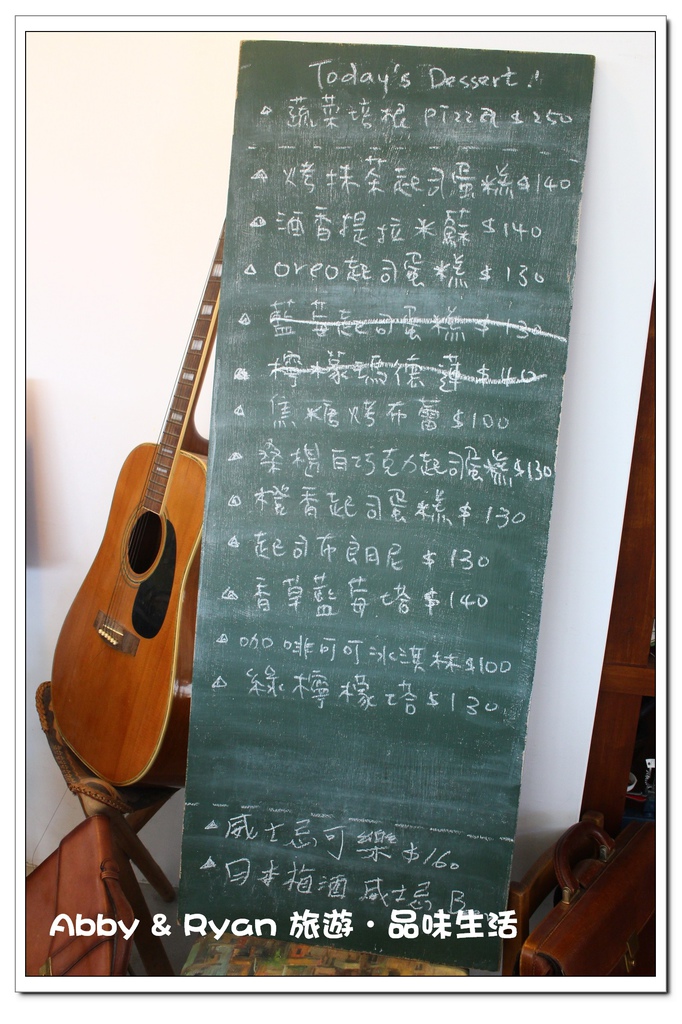 Today's Dessert!
蔬菜培根 PIZZA $250
烤抹茶起司蛋糕 $140
酒香提拉米蘇 $140
oreo起司蛋糕 $130
藍莓起司蛋糕 $130
檸檬瑪德蓮 $140
焦糖烤布蕾 $100
桑椹白巧克力起司蛋糕 $130
橙香起司蛋糕 $130
起司布朗尼 $130
香草藍莓塔 $140
咖啡可可冰淇淋 $100
綠檸檬塔 $130
威士忌可樂 $160
日本梅酒 威士忌 B
Abby & Ryan 旅遊・品味生活